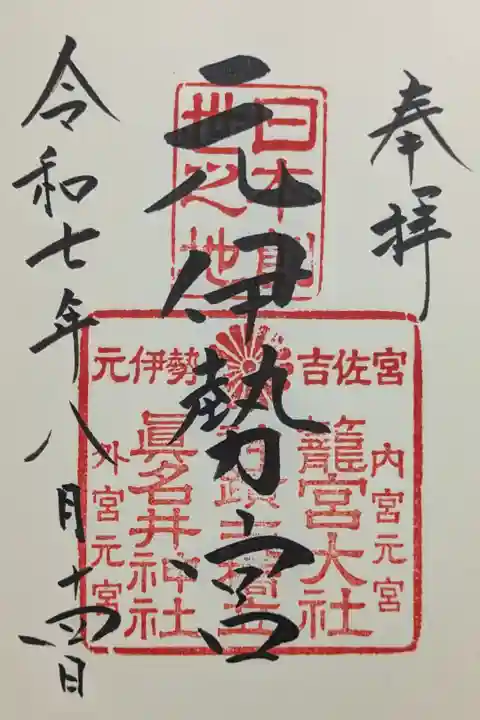 奉拝
元伊勢宮
令和七年八月日
日本創
世之地
元伊勢 吉佐宮
内宮元宮
籠宮大社
眞名井神社
外宮元宮